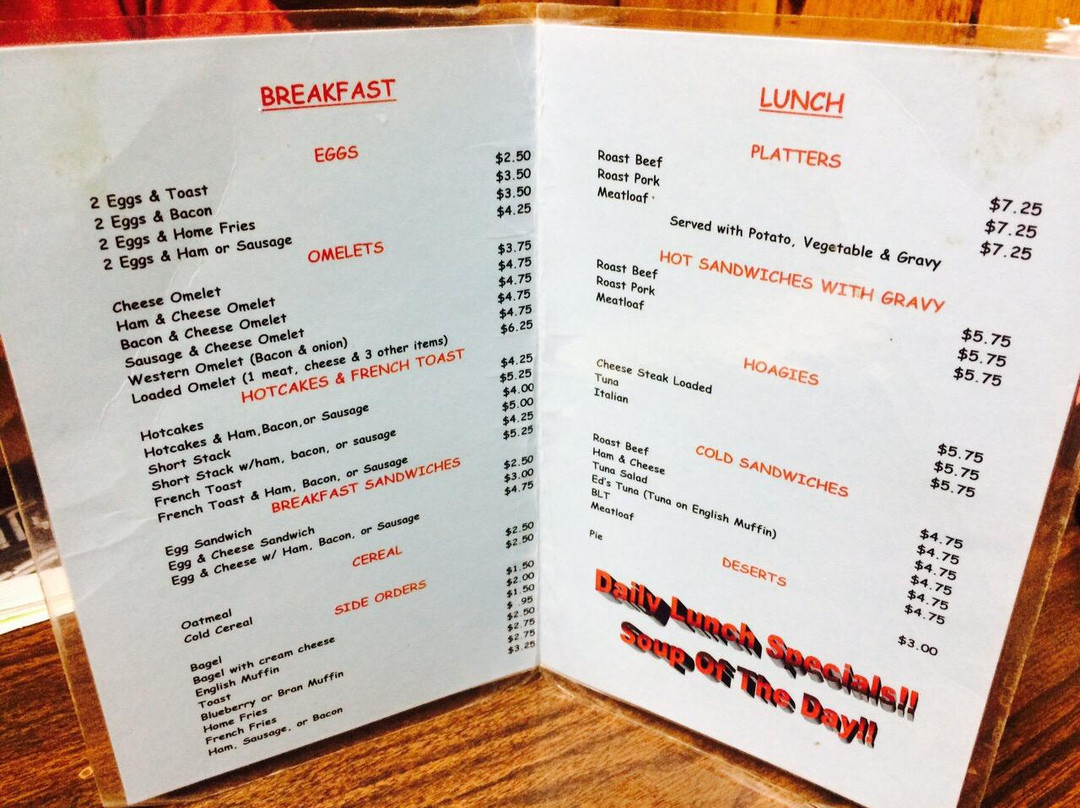 BREAKFAST
EGGS
2 Eggs & Toast $2.50
2 Eggs & Bacon $3.50
2 Eggs & Home Fries $3.50
2 Eggs & Ham or Sausage $4.25
OMELETS
Cheese Omelet $3.75
Ham & Cheese Omelet $4.75
Bacon & Cheese Omelet $4.75
Sausage & Cheese Omelet $4.75
Western Omelet (Bacon & onion) $4.75
Loaded Omelet (1 meat, cheese & 3 other items) $6.25
HOTCAKES & FRENCH TOAST
Hotcakes $4.25
Hotcakes & Ham,Bacon,or Sausage $5.25
Short Stack $4.00
Short Stack w/ham, bacon, or sausage $5.00
French Toast $4.25
French Toast & Ham, Bacon, or Sausage $5.25
BREAKFAST SANDWICHES
Egg Sandwich $2.50
Egg & Cheese Sandwich $3.00
Egg & Cheese w/ Ham, Bacon, or Sausage $4.75
CEREAL
Oatmeal $2.50
Cold Cereal $2.50
SIDE ORDERS
Bagel $1.50
Bagel with cream cheese $2.00
English Muffin $1.50
Toast $ .95
Blueberry or Bran Muffin $2.50
Home Fries $2.75
French Fries $2.75
Ham, Sausage, or Bacon $3.25
LUNCH
PLATTERS
Roast Beef $7.25
Roast Pork $7.25
Meatloaf $7.25
Served with Potato, Vegetable & Gravy
HOT SANDWICHES WITH GRAVY
Roast Beef $5.75
Roast Pork $5.75
Meatloaf $5.75
HOAGIES
Cheese Steak Loaded $5.75
Tuna $5.75
Italian $5.75
COLD SANDWICHES
Roast Beef $4.75
Ham & Cheese $4.75
Tuna Salad $4.75
Ed's Tuna (Tuna on English Muffin) $4.75
BLT $4.75
Meatloaf $4.75
DESERTS
Pie $3.00
Daily Lunch Specials!!
Soup Of The Day!!